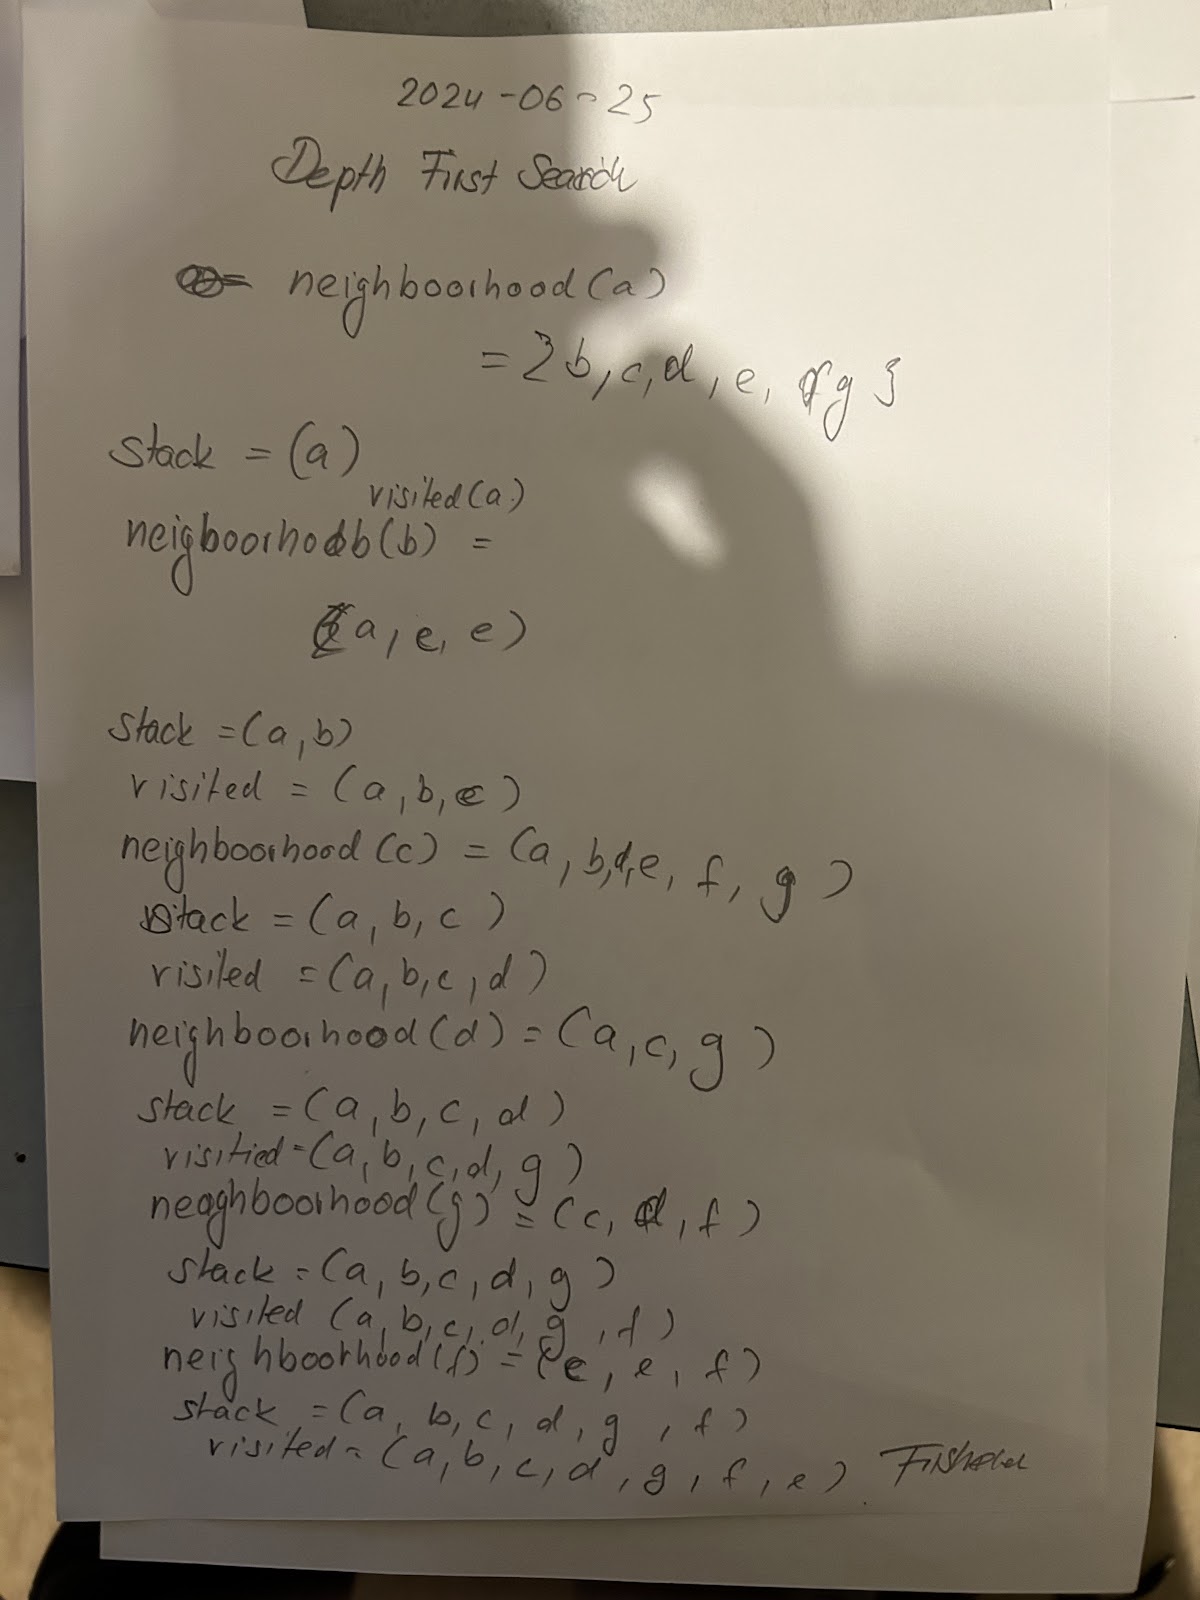 2024-06-25
Depth First Search
neighboorhood(a)
= {b, c, d, e, g}
stack = (a)
visited(a)
neigboorhodb(b) =
(a, e, e)
stack = (a, b)
visited = (a, b, c)
neighboorhood(c) = (a, b, d, e, f, g)
stack = (a, b, c)
visited = (a, b, c, d)
neighboorhood(d) = (a, c, g)
stack = (a, b, c, d)
visitied = (a, b, c, d, g)
neaghboorhood(g) = (c, d, f)
stack = (a, b, c, d, g)
visited (a, b, c, d, g, f)
neighboorhood(f) = (c, e, f)
stack = (a, b, c, d, g, f)
visited = (a, b, c, d, g, f, e)